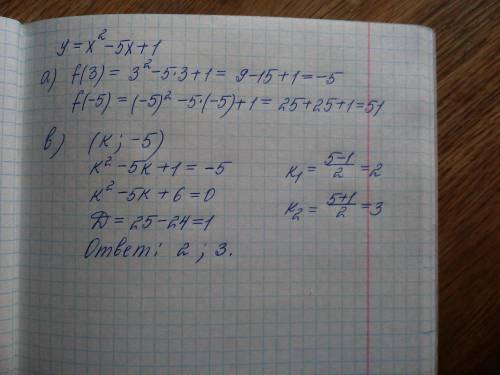 y = x² - 5x + 1
а) f(3) = 3² - 5·3 + 1 = 9 - 15 + 1 = -5
f(-5) = (-5)² - 5·(-5) + 1 = 25 + 25 + 1 = 51
в) (к; -5)
к² - 5к + 1 = -5
к² - 5к + 6 = 0
Д = 25 - 24 = 1
Ответ: 2 ; 3.
к₁ = (5-1)/2 = 2
к₂ = (5+1)/2 = 3